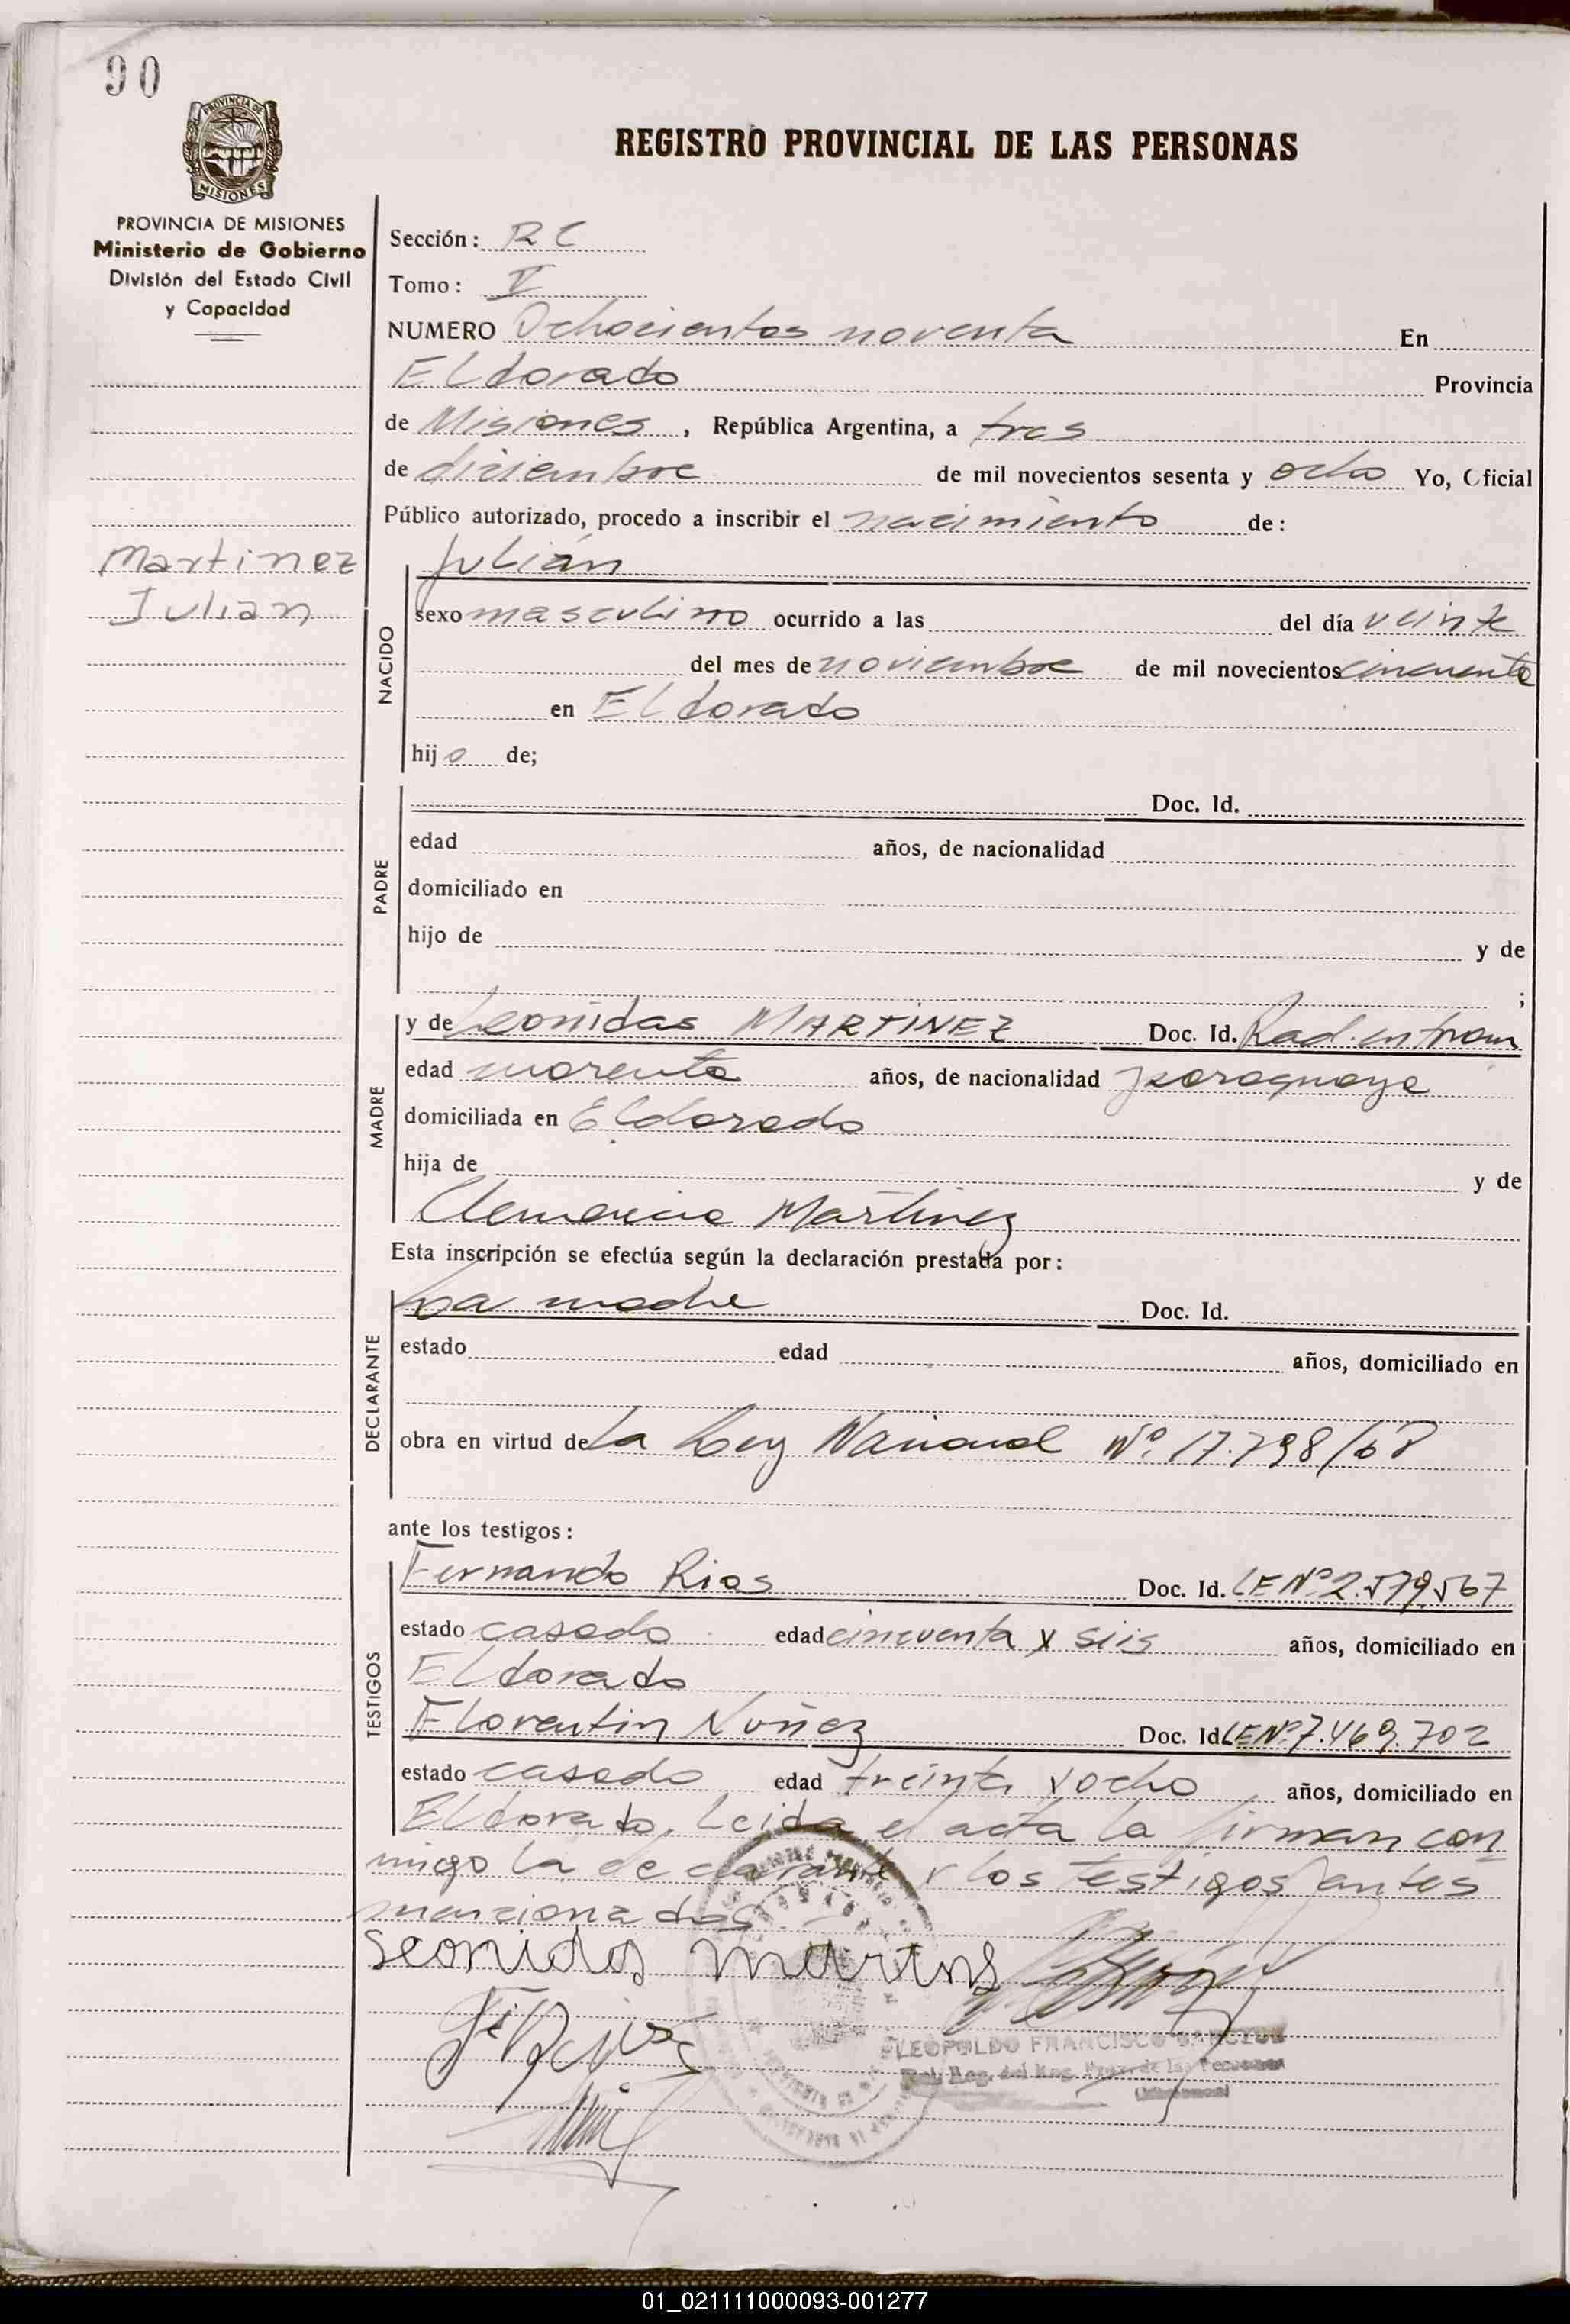 90
PROVINCIA DE
MISIONES
REGISTRO PROVINCIAL DE LAS PERSONAS
PROVINCIA DE MISIONES
Ministerio de Gobierno
División del Estado Civil
y Capacidad
Sección: RC
Tomo: V
NUMERO Ochocientos noventa En
Eldorado Provincia
de Misiones, República Argentina, a tres
de diciembre de mil novecientos sesenta y ocho Yo, Oficial
Público autorizado, procedo a inscribir el nacimiento de:
Martinez
Julian
NACIDO
Julián
sexo masculino ocurrido a las del día veinte
del mes de noviembre de mil novecientos cincuenta
en Eldorado
hijo de;
PADRE
Doc. Id.
edad años, de nacionalidad
domiciliado en
hijo de y de
;
MADRE
y de Leonidas MARTINEZ Doc. Id. Rad. en tram
edad cuarenta años, de nacionalidad paraguaya
domiciliada en Eldorado
hija de y de
Clemencia Martinez
Esta inscripción se efectúa según la declaración prestada por:
DECLARANTE
La madre Doc. Id.
estado edad años, domiciliado en
obra en virtud de la Ley Nacional Nº 17.798/68
ante los testigos:
TESTIGOS
Fernando Rios Doc. Id. LE Nº 2.579.567
estado casado edad cincuenta y seis años, domiciliado en
Eldorado
Florentin Nuñez Doc. Id LE Nº 7.469.702
estado casado edad treinta y ocho años, domiciliado en
Eldorado. Leida el acta la firman con
migo la declarante y los testigos antes
mencionados.
Leonidas
LEOPOLDO FRANCISCO
01_021111000093-001277